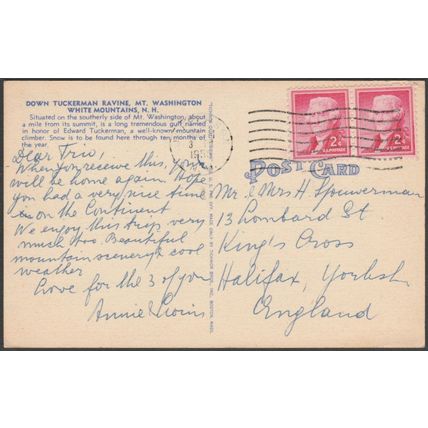 DOWN TUCKERMAN RAVINE, MT. WASHINGTON
WHITE MOUNTAINS, N. H.
Situated on the southerly side of Mt. Washington, about
a mile from its summit, is a long tremendous gulf named
in honor of Edward Tuckerman, a well-known mountain
climber. Snow is to be found here through ten months of
the year.
Dear Trio,
When you receive this, you
will be home again. Hope
you had a very nice time
on the Continent
We enjoy this trip very
much too. Beautiful
mountain scenery & cool
weather
Love for the 3 of you
Annie
POST CARD
Mr. & Mrs H
13 Lombard St
King's Cross
Halifax, Yorksh
England
2¢
2¢